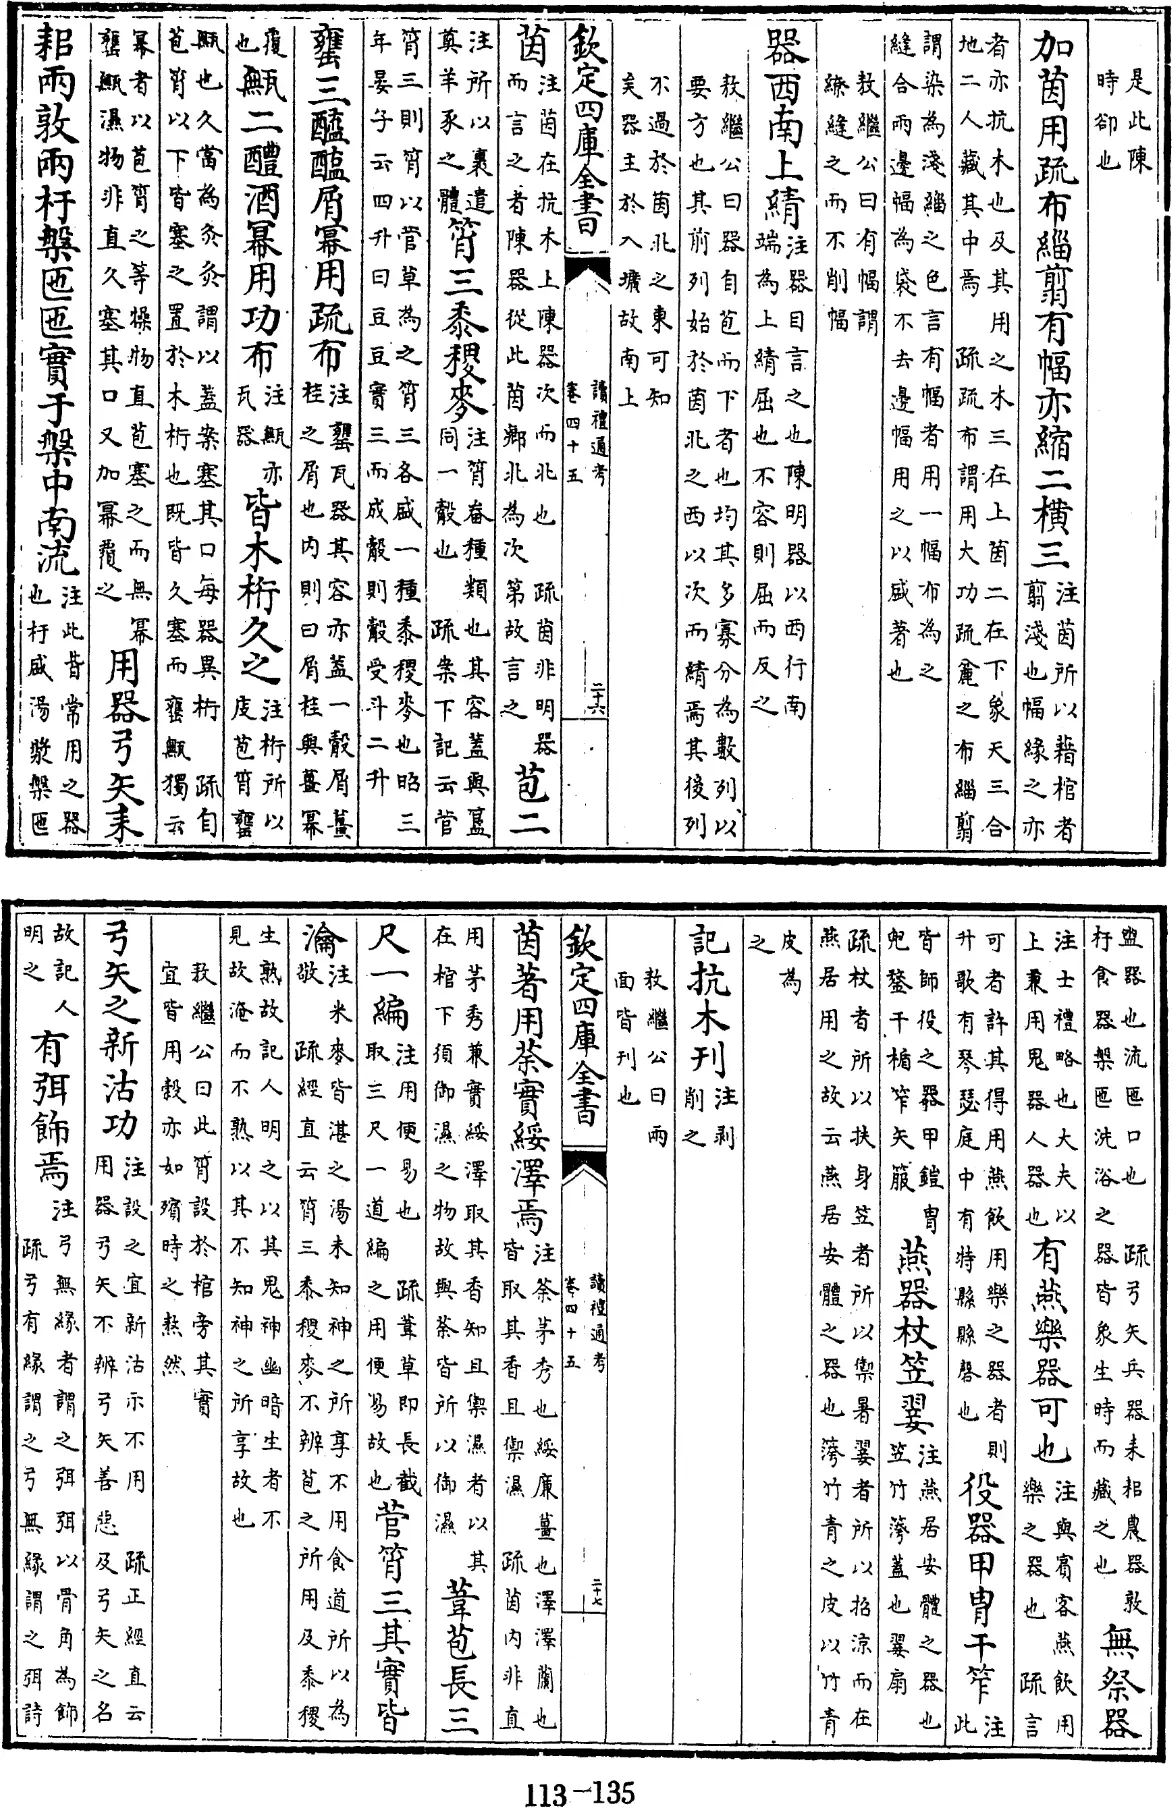 是此陳
時卻也
加茵用疏布緇翦有幅亦縮二橫三
注茵所以藉棺者
翦淺也幅緣之亦
者亦抗木也及其用之木三在上茵二在下象天三合
地二人藏其中焉 疏疏布謂用大功疏麄之布緇翦
謂染為淺緇之色言有幅者用一幅布為之
縫合兩邊幅為袋不去邊幅用之以盛著也
敖繼公曰有幅謂
繚縫之而不削幅
器西南上綪
注器目言之也陳明器以西行南
端為上綪屈也不容則屈而反之
敖繼公曰器自苞而下者也均其多寡分為數列以
要方也其前列始於茵北之西以次而綪焉其後列
不過於茵北之東可知
矣器主於入壙故南上
欽定四庫全書
讀禮通考
卷四十五
二十六
茵
注茵在抗木上陳器次而北也 疏茵非明器
而言之者陳器從此茵鄉北為次第故言之
苞二
注所以裹遣
奠羊豕之體
筲三黍稷麥
注筲畚種類也其容蓋與簋
同一觳也 疏案下記云菅
筲三則筲以菅草為之筲三各盛一種黍稷麥也昭三
年晏子云四升曰豆豆實三而成觳則觳受斗二升
罋三醯醢屑冪用疏布
注罋瓦器其容亦蓋一觳屑薑
桂之屑也內則曰屑桂與薑冪
覆
也
甒二醴酒冪用功布
注甒亦
瓦器
皆木桁久之
注桁所以
庋苞筲罋
甒也久當為灸灸謂以蓋案塞其口每器異桁 疏自
苞筲以下皆塞之置於木桁也既皆久塞而罋甒獨云
冪者以苞筲之等燥物直苞塞之而無冪
罋甒濕物非直久塞其口又加冪覆之
用器弓矢耒
耜兩敦兩杅槃匜匜實于槃中南流
注此皆常用之器
也杅盛湯漿槃匜
盥器也流匜口也 疏弓矢兵器耒耜農器敦
杅食器槃匜洗浴之器皆象生時而藏之也
無祭器
注士禮略也大夫以
上兼用鬼器人器也
有燕樂器可也
注與賓客燕飲用
樂之器也 疏言
可者許其得用燕飲用樂之器者則
升歌有琴瑟庭中有特縣縣磬也
役器甲胄干笮
注
此
皆師役之器甲鎧胄
兜鍪干楯笮矢箙
燕器杖笠翣
注燕居安體之器也
笠竹䈼蓋也翣扇
疏杖者所以扶身笠者所以禦暑翣者所以招涼而在
燕居用之故云燕居安體之器也䈼竹青之皮以竹青
皮為
之
記抗木刊
注剥
削之
敖繼公曰兩
面皆刊也
欽定四庫全書
讀禮通考
卷四十五
二十七
茵著用荼實綏澤焉
注荼茅秀也綏廉薑也澤澤蘭也
皆取其香且禦濕 疏茵內非直
用茅秀兼實綏澤取其香知且禦濕者以其
在棺下須御濕之物故與荼皆所以御濕
葦苞長三
尺一編
注用便易也 疏葦草即長截
取三尺一道編之用便易故也
菅筲三其實皆
瀹
注米麥皆湛之湯未知神之所享不用食道所以為
敬 疏經直云筲三黍稷麥不辨苞之所用及黍稷
生熟故記人明之以其鬼神幽暗生者不
見故淹而不熟以其不知神之所享故也
敖繼公曰此筲設於棺旁其實
宜皆用穀亦如殯時之熬然
弓矢之新沽功
注設之宜新沽示不用 疏正經直云
用器弓矢不辨弓矢善惡及弓矢之名
故記人
明之
有弭飾焉
注弓無緣者謂之弭弭以骨角為飾
疏弓有緣謂之弓無緣謂之弭詩
113-135